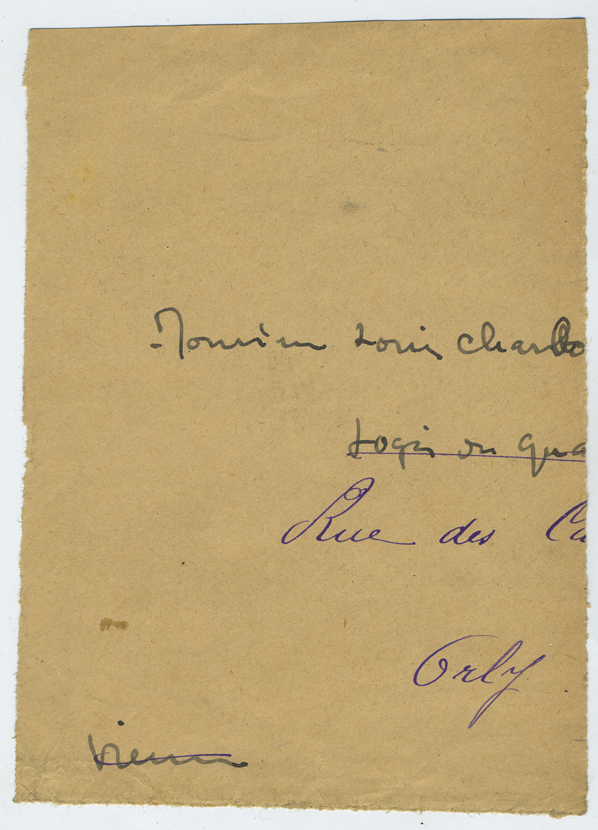 Monsieur Louis Charbo
Logis du Qua
Rue des Ca
Orly.
Vienne